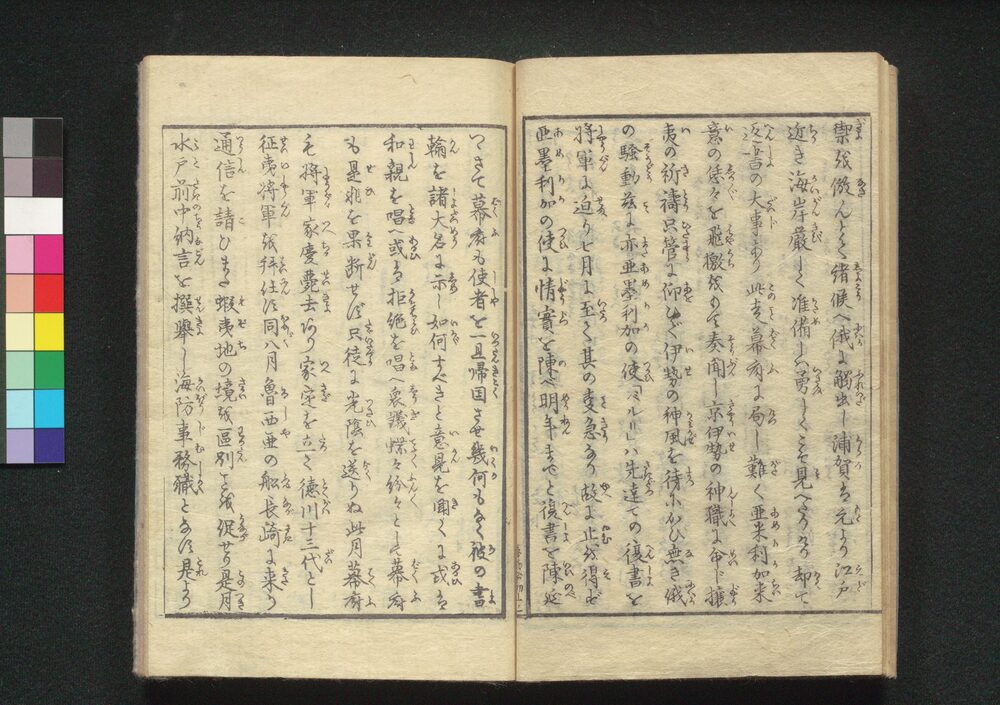 禦を儆んとて諸候へ俄に觸出し浦賀は元より江戸
近き海岸嚴しく准備しハ勇しくこそ見へたりける却て
返書の大事あり此は幕府に局し難く亜米利加来
意の儘々を飛檄をもて奏聞し京伊勢の神職に命じ攘
夷の祈禱只管に仰ひで伊勢の神風を待ホかひ無き俄
の騒動茲に亦亜墨利加の使「ペルリ」ハ先達ての復書を
将軍に迫り七月に至て其の変急なり故に止を得ず
亜墨利加の使に情實を陳べ明年までと復書を陳延
つさて幕府も使者を一旦帰国させ幾何もなく彼の書
翰を諸大名に示し如何すべきと意見を聞くに或は
和親を唱へ或は拒絶を唱へ衆議喋々紛々として幕府
も是非を果断せず只徒に光陰を送りぬ此月幕府
も将軍家慶薨去あり家定を立て徳川十三代とし
征夷将軍を拝任す同八月魯西亜の船長崎に来り
通信を請ひまた蝦夷地の境を區別を促せり是月
水戸前中納言を撰舉し海防事務職となす是より